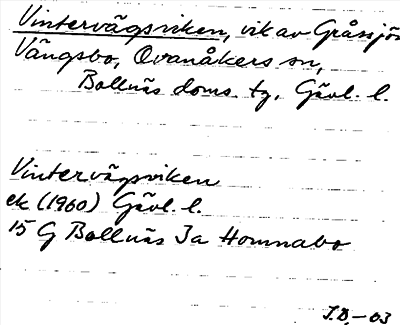 Vintervägsviken, vik av Gråssjön
Vängsbo, Ovanåkers sn,
Bollnäs doms. tg, Gävl. l.
Vintervägsviken
ek (1960) Gävl. l.
15 G Bollnäs Ja Homnabo
J.D.-03